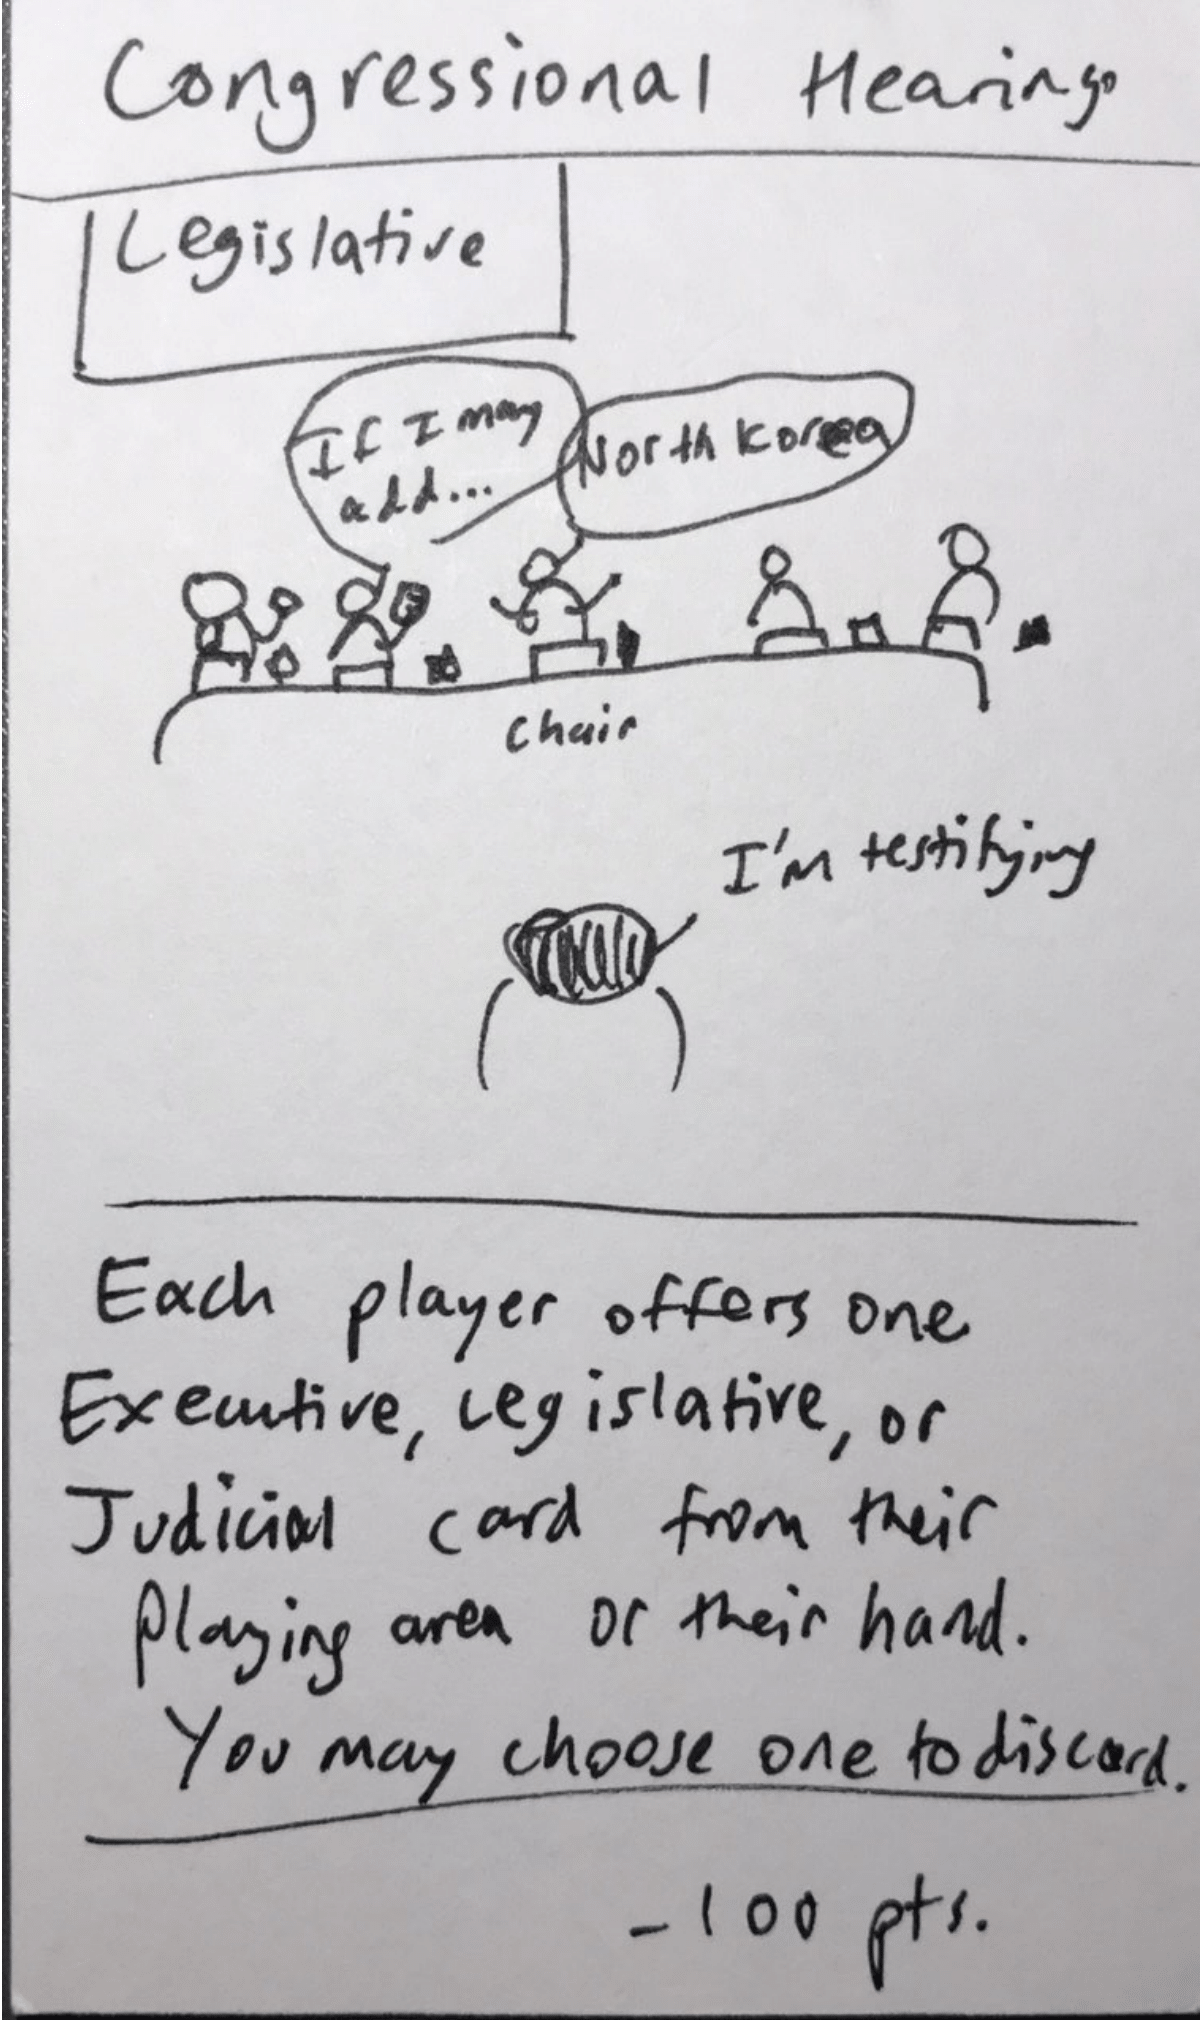 Congressional Hearing
Legislative
If I may
add...
North Korea
chair
I'm testifying
Each player offers one
Executive, Legislative, or
Judicial card from their
Playing area or their hand.
You may choose one to discard.
-100 pts.